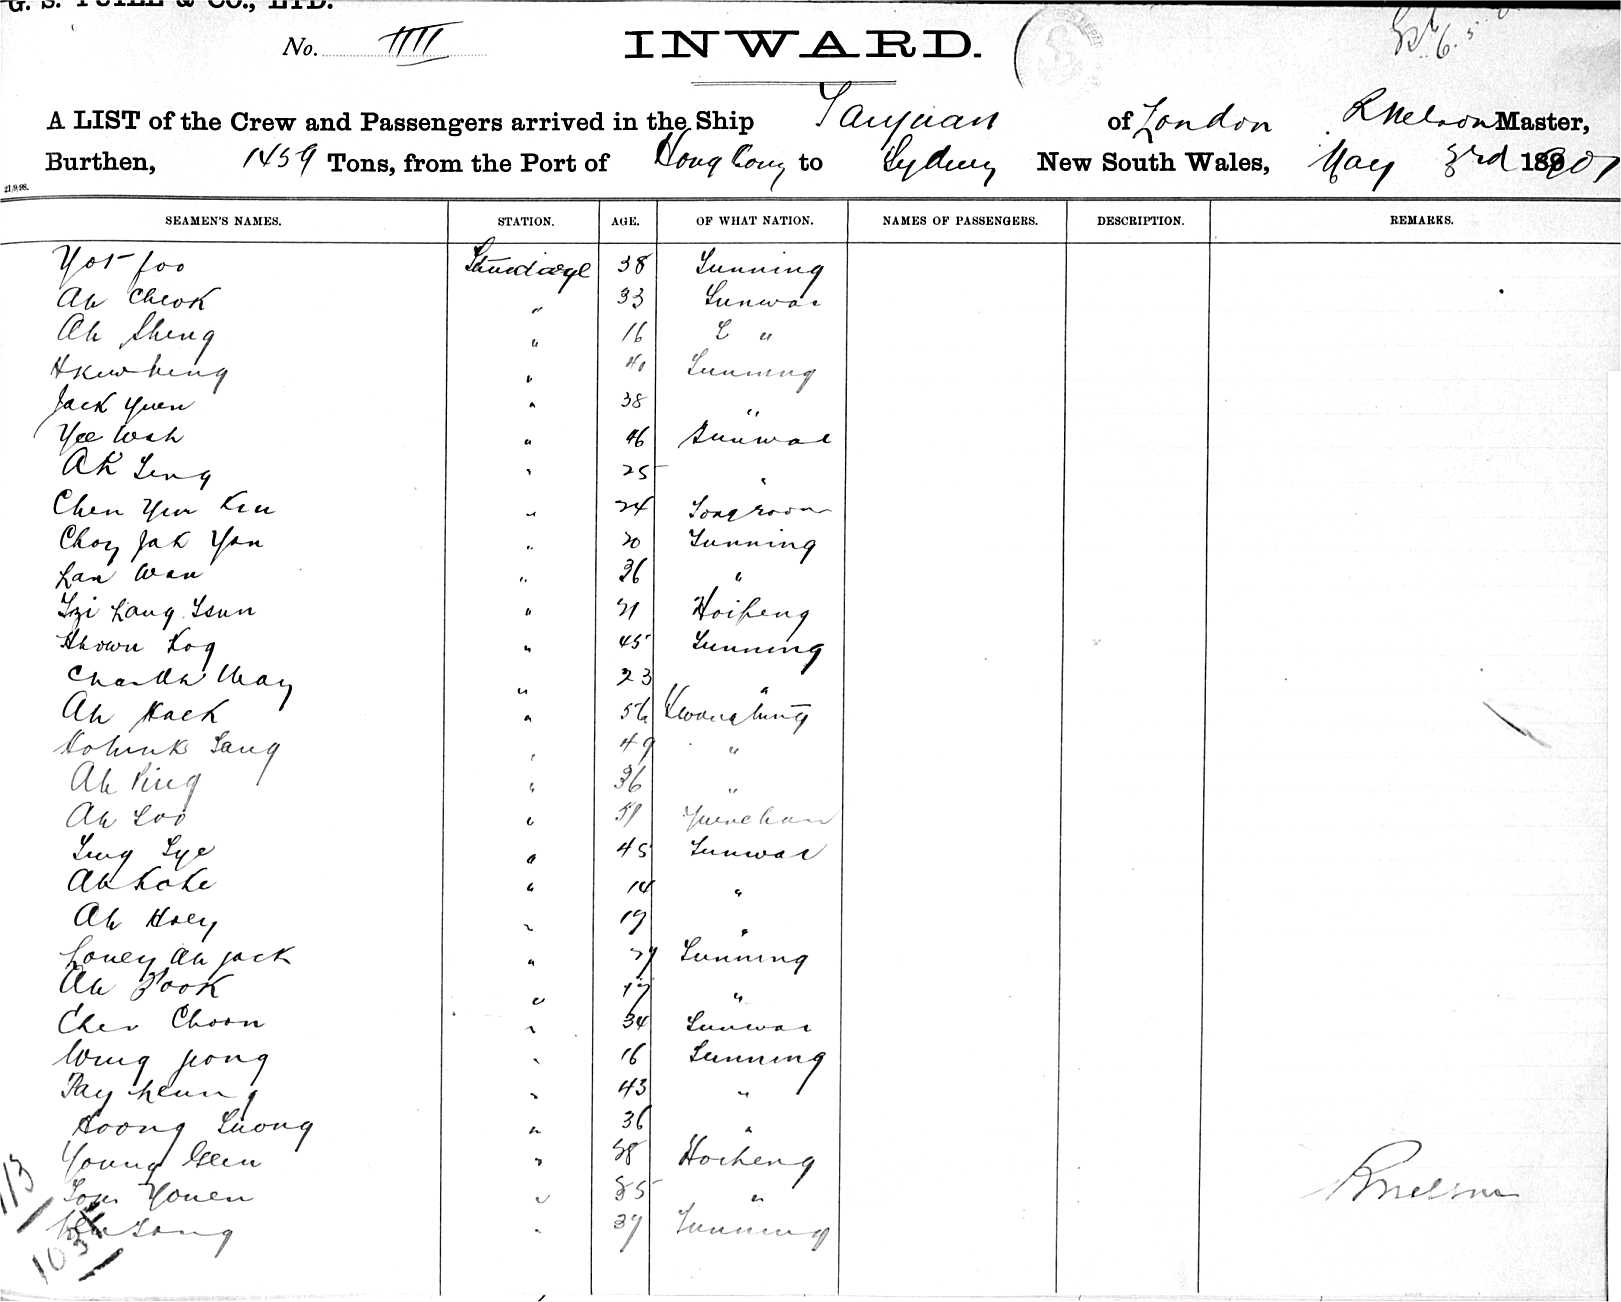 G. S. YUILL & CO., LTD.
No. IIII
INWARD.
A LIST of the Crew and Passengers arrived in the Ship Taiyuan of London R Nelson Master,
Burthen, 1459 Tons, from the Port of Hong Kong to Sydney New South Wales, May 3rd 1901
21/9/98.
SEAMEN'S NAMES. STATION. AGE. OF WHAT NATION. NAMES OF PASSENGERS. DESCRIPTION. REMARKS.
Yot foo 38 Sunning
Ah Cheok " 33 Sunwai
Ah Sheng " 16 "
" 41 Sunning
Jack Yuen " 38 "
Yee Wah " 46 Sunwai
Ah Seng " 25 "
Chen Yun Kin " 24
Choy Jak Yan " 20 Sunning
Lan Wan " 36 "
Tzi Lang Tsun " 31 Hoipeng
Ahown Kog " 45 Sunning
" 23 "
Ah Hack " 56
Sang " 49 "
Ah Ping " 36 "
Ah Loo " 51
Sung Sye " 45 Sunwai
Ah Koke " 14 "
Ah Hoey " 19 "
Loney Ah Jack " 29 Sunning
Ah Fook " 17 "
Chew Choon " 34 Sunwai
Wing Jeong " 16 Sunning
Tay heung " 43 "
Hoong Luong " 36 "
Young Geen " 38 Hoiheng
Youen " 35 "
" 37 Sunning
R Nelson
113